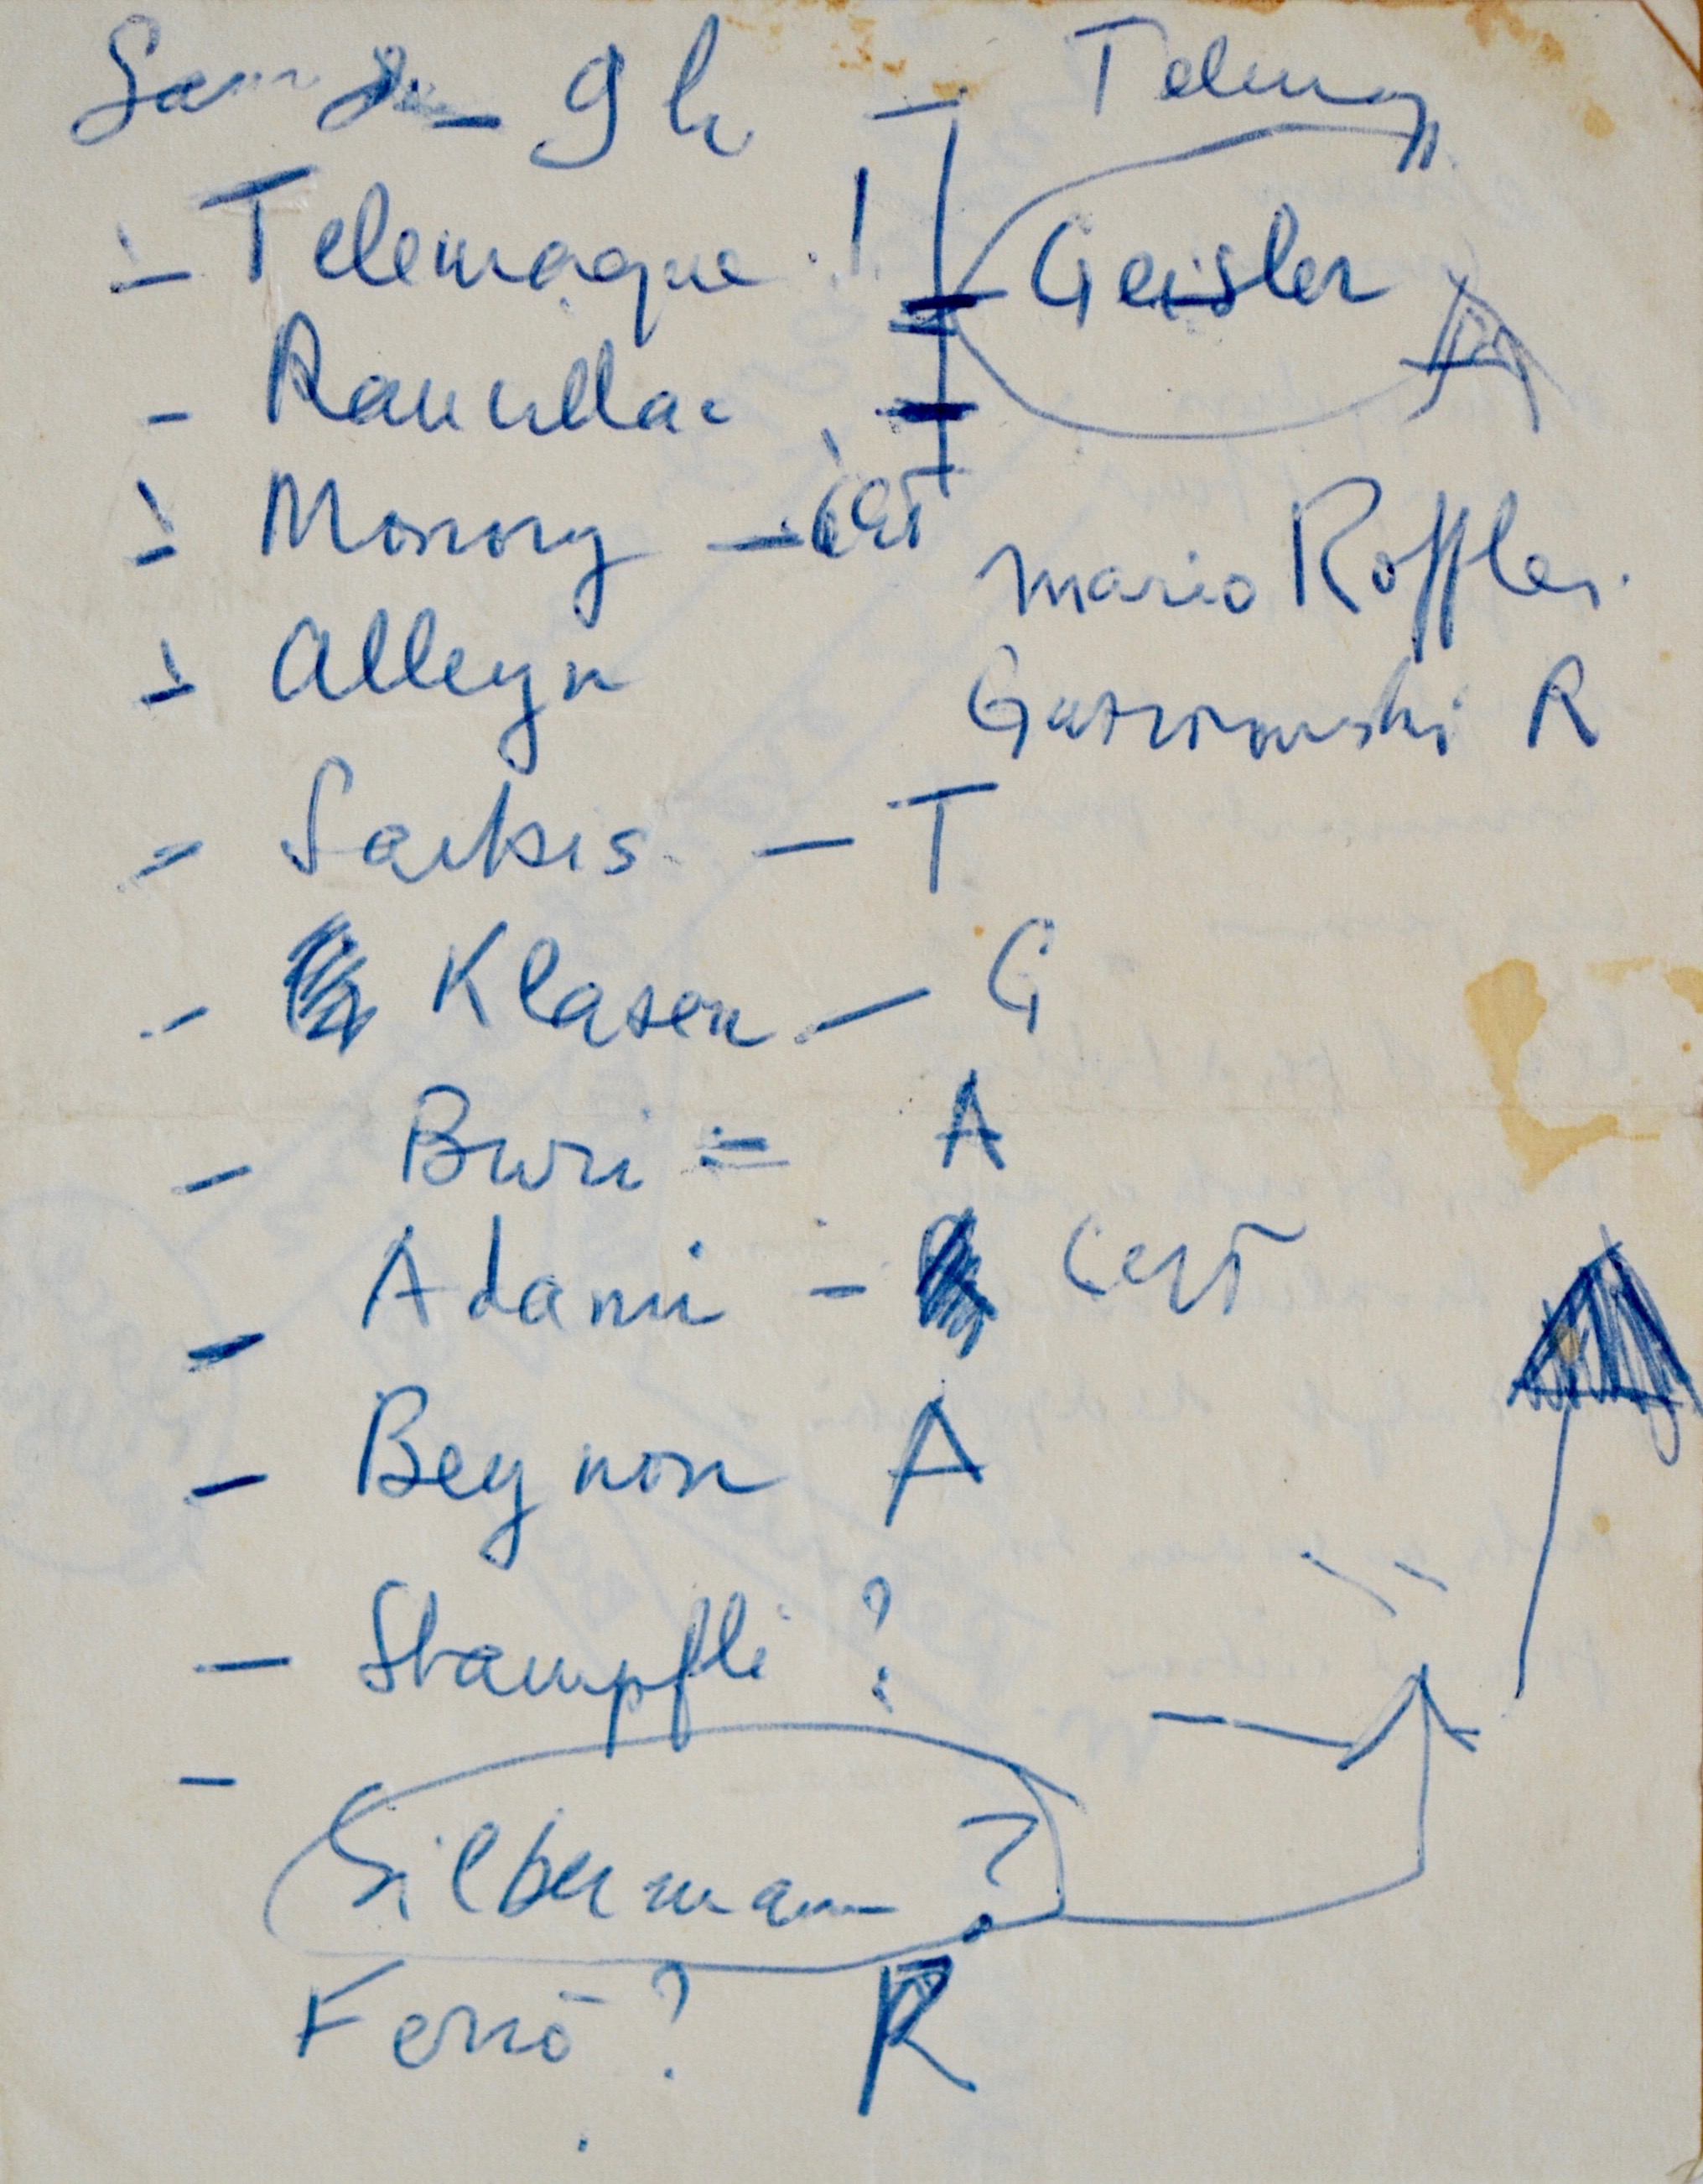 Sam 9h – Telemaq
– Telemaque !
Geisler
– Rancillac
– Monory – CERT
Mario Roffler
– Alleyn
Gasiorowski R
– Sarkis – T
– Klasen – G
– Buri = A
– Adami – CERT
– Beynon A
– Stampfli ?
–
Silbermann ?
Ferró ? R